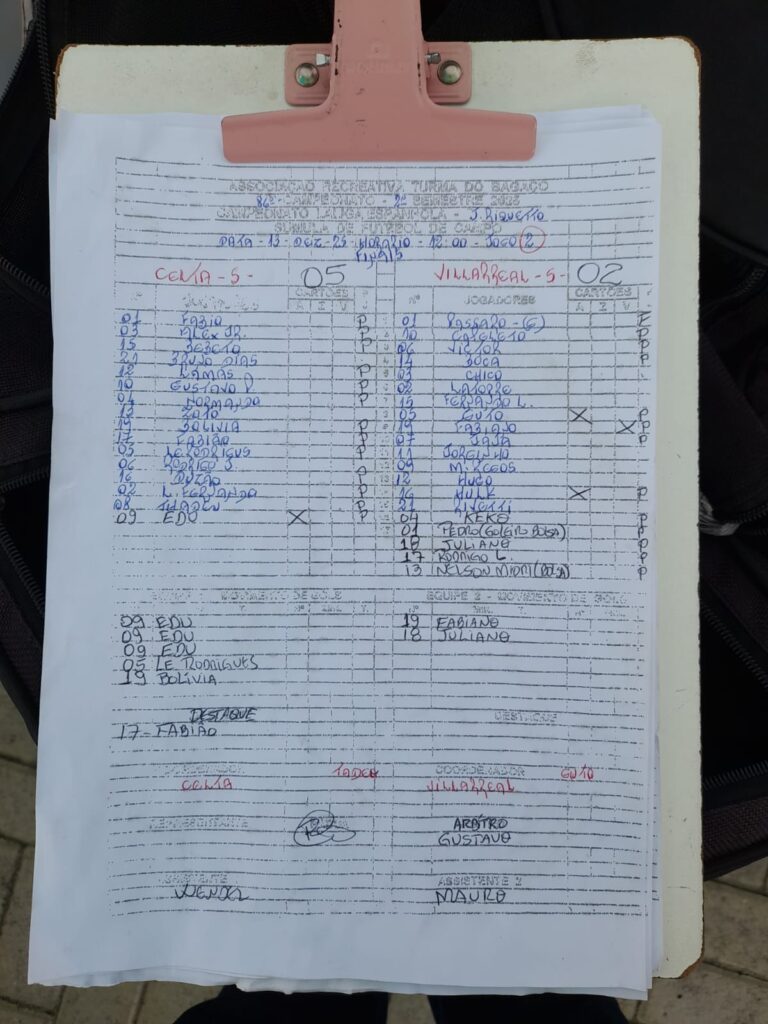 ASSOCIAÇÃO RECREATIVA TURMA DO BAGAÇO
CAMPEONATO - 2º SEMESTRE 2025
CAMPEONATO LALIGA ESPANHOLA - J. RIQUETTO
SÚMULA DE FUTEBOL DE CAMPO
DATA - 13 - DEZ - 25 - HORARIO - 12:00 - JOGO 2
FINAIS
CELTA - S - 05
VILLARREAL - S - 02
CARTÕES
A V
01 FABIO P
03 ALEX JR. P
15 BEBETO P
21 BRUNO DIAS
12 LEMAS P
10 GUSTAVO P. P
04 NORMANDO P
13 ZOIO
19 BOLIVIA P
17 FABIÃO P
05 LE RODRIGUES P
06 RODRIGO S.
16 P
02 L. FERNANDO P
08 P
09 EDU X
Nº JOGADORES CARTÕES
A V
01 PASSARO - (G)
10 P
06 VICTOR P
14 P
03 CHICO
02 LATORRE
15 FERNANDO L.
05 GUTO X P
19 FABIANO X P
07 JAJA P
11 JORGINHO
09 MARCOS
12 HUGO
16 HULK X P
21
04 KEKO P
01 PEDRO (GOLEIRO BOLSA) P
18 JULIANO P
17 RODRIGO L. P
13 NELSON MIORI (BOLSA) P
MOVIMENTO DE GOLS
09 EDU
09 EDU
09 EDU
05 LE RODRIGUES
19 BOLÍVIA
DESTAQUE
17 - FABIÃO
EQUIPE 2 - MOVIMENTO DE GOLS
19 FABIANO
18 JULIANO
DESTAQUE
COORDENADOR
CELTA TADEU
COORDENADOR
VILLARREAL GUTO
REPRESENTANTE
ARBITRO
GUSTAVO
ASSISTENTE
WENDEL
ASSISTENTE 2
MAURO